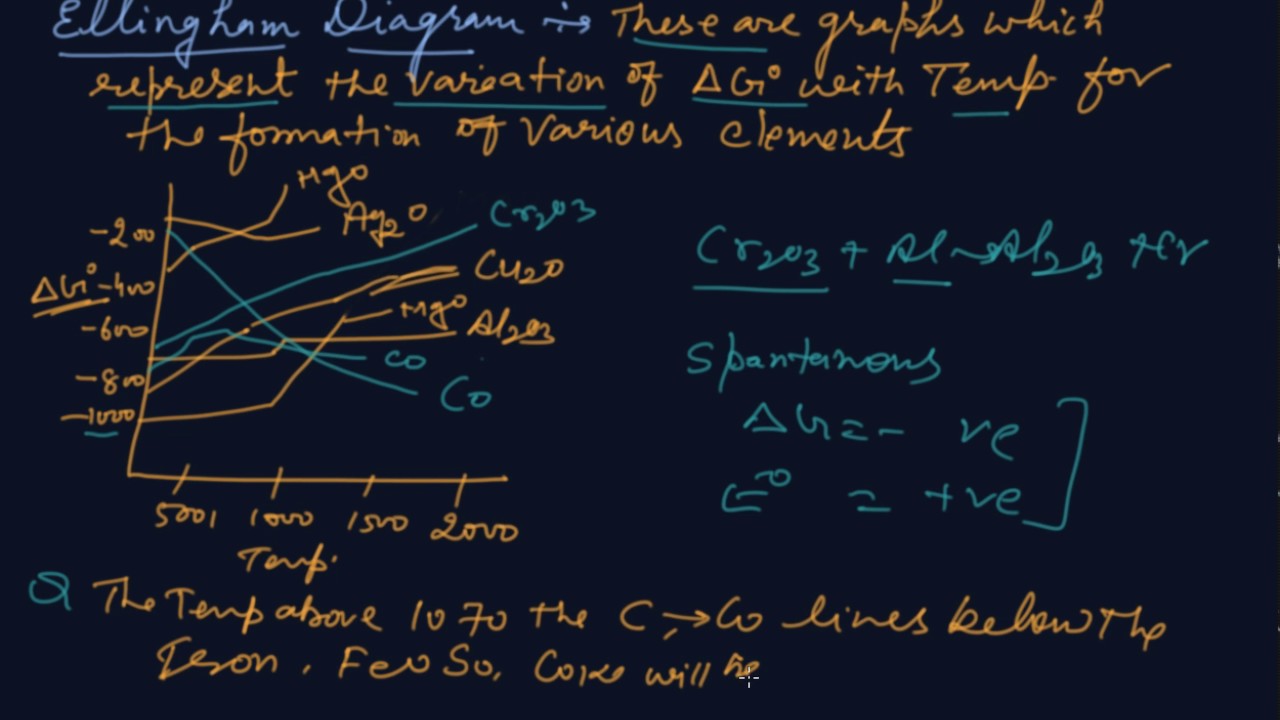 Ellingham Diagram :→ These are graphs which
represent the variation of ΔG° with Temp for
the formation of various elements
HgO
Ag₂O
Cr₂O₃
Cu₂O
MgO
Al₂O₃
CO
CO
-200
ΔG° -400
-600
-800
-1000
500 1000 1500 2000
Temp.
Cr₂O₃ + Al → Al₂O₃ + Cr
Spantanous
ΔG = - ve
E° = +ve
Q The Temp above 1070 the C → CO lines below the
Iron, FeO So, will be